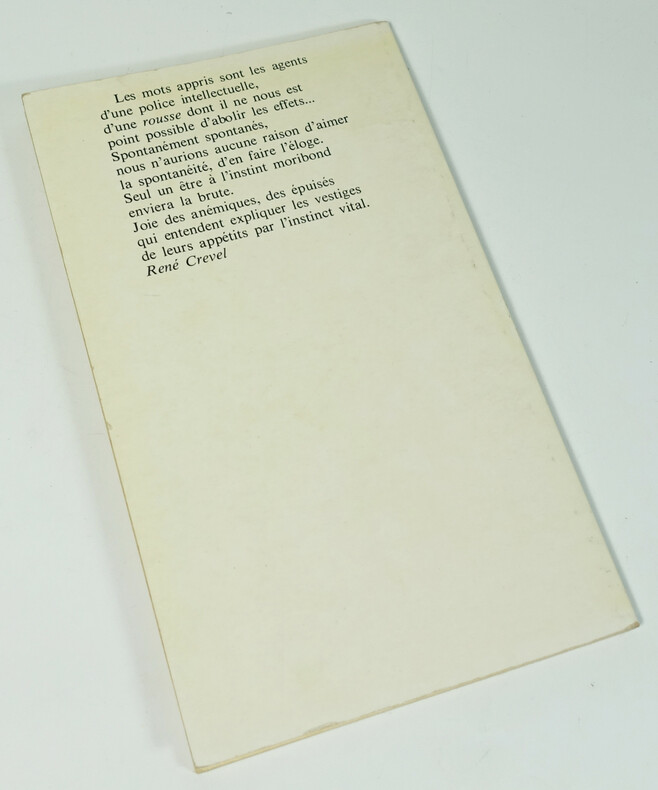 Les mots appris sont les agents
d'une police intellectuelle,
d'une rousse dont il ne nous est
point possible d'abolir les effets...
Spontanément spontanés,
nous n'aurions aucune raison d'aimer
la spontanéité, d'en faire l'éloge.
Seul un être à l'instint moribond
enviera la brute.
Joie des anémiques, des épuisés
qui entendent expliquer les vestiges
de leurs appétits par l'instinct vital.
René Crevel